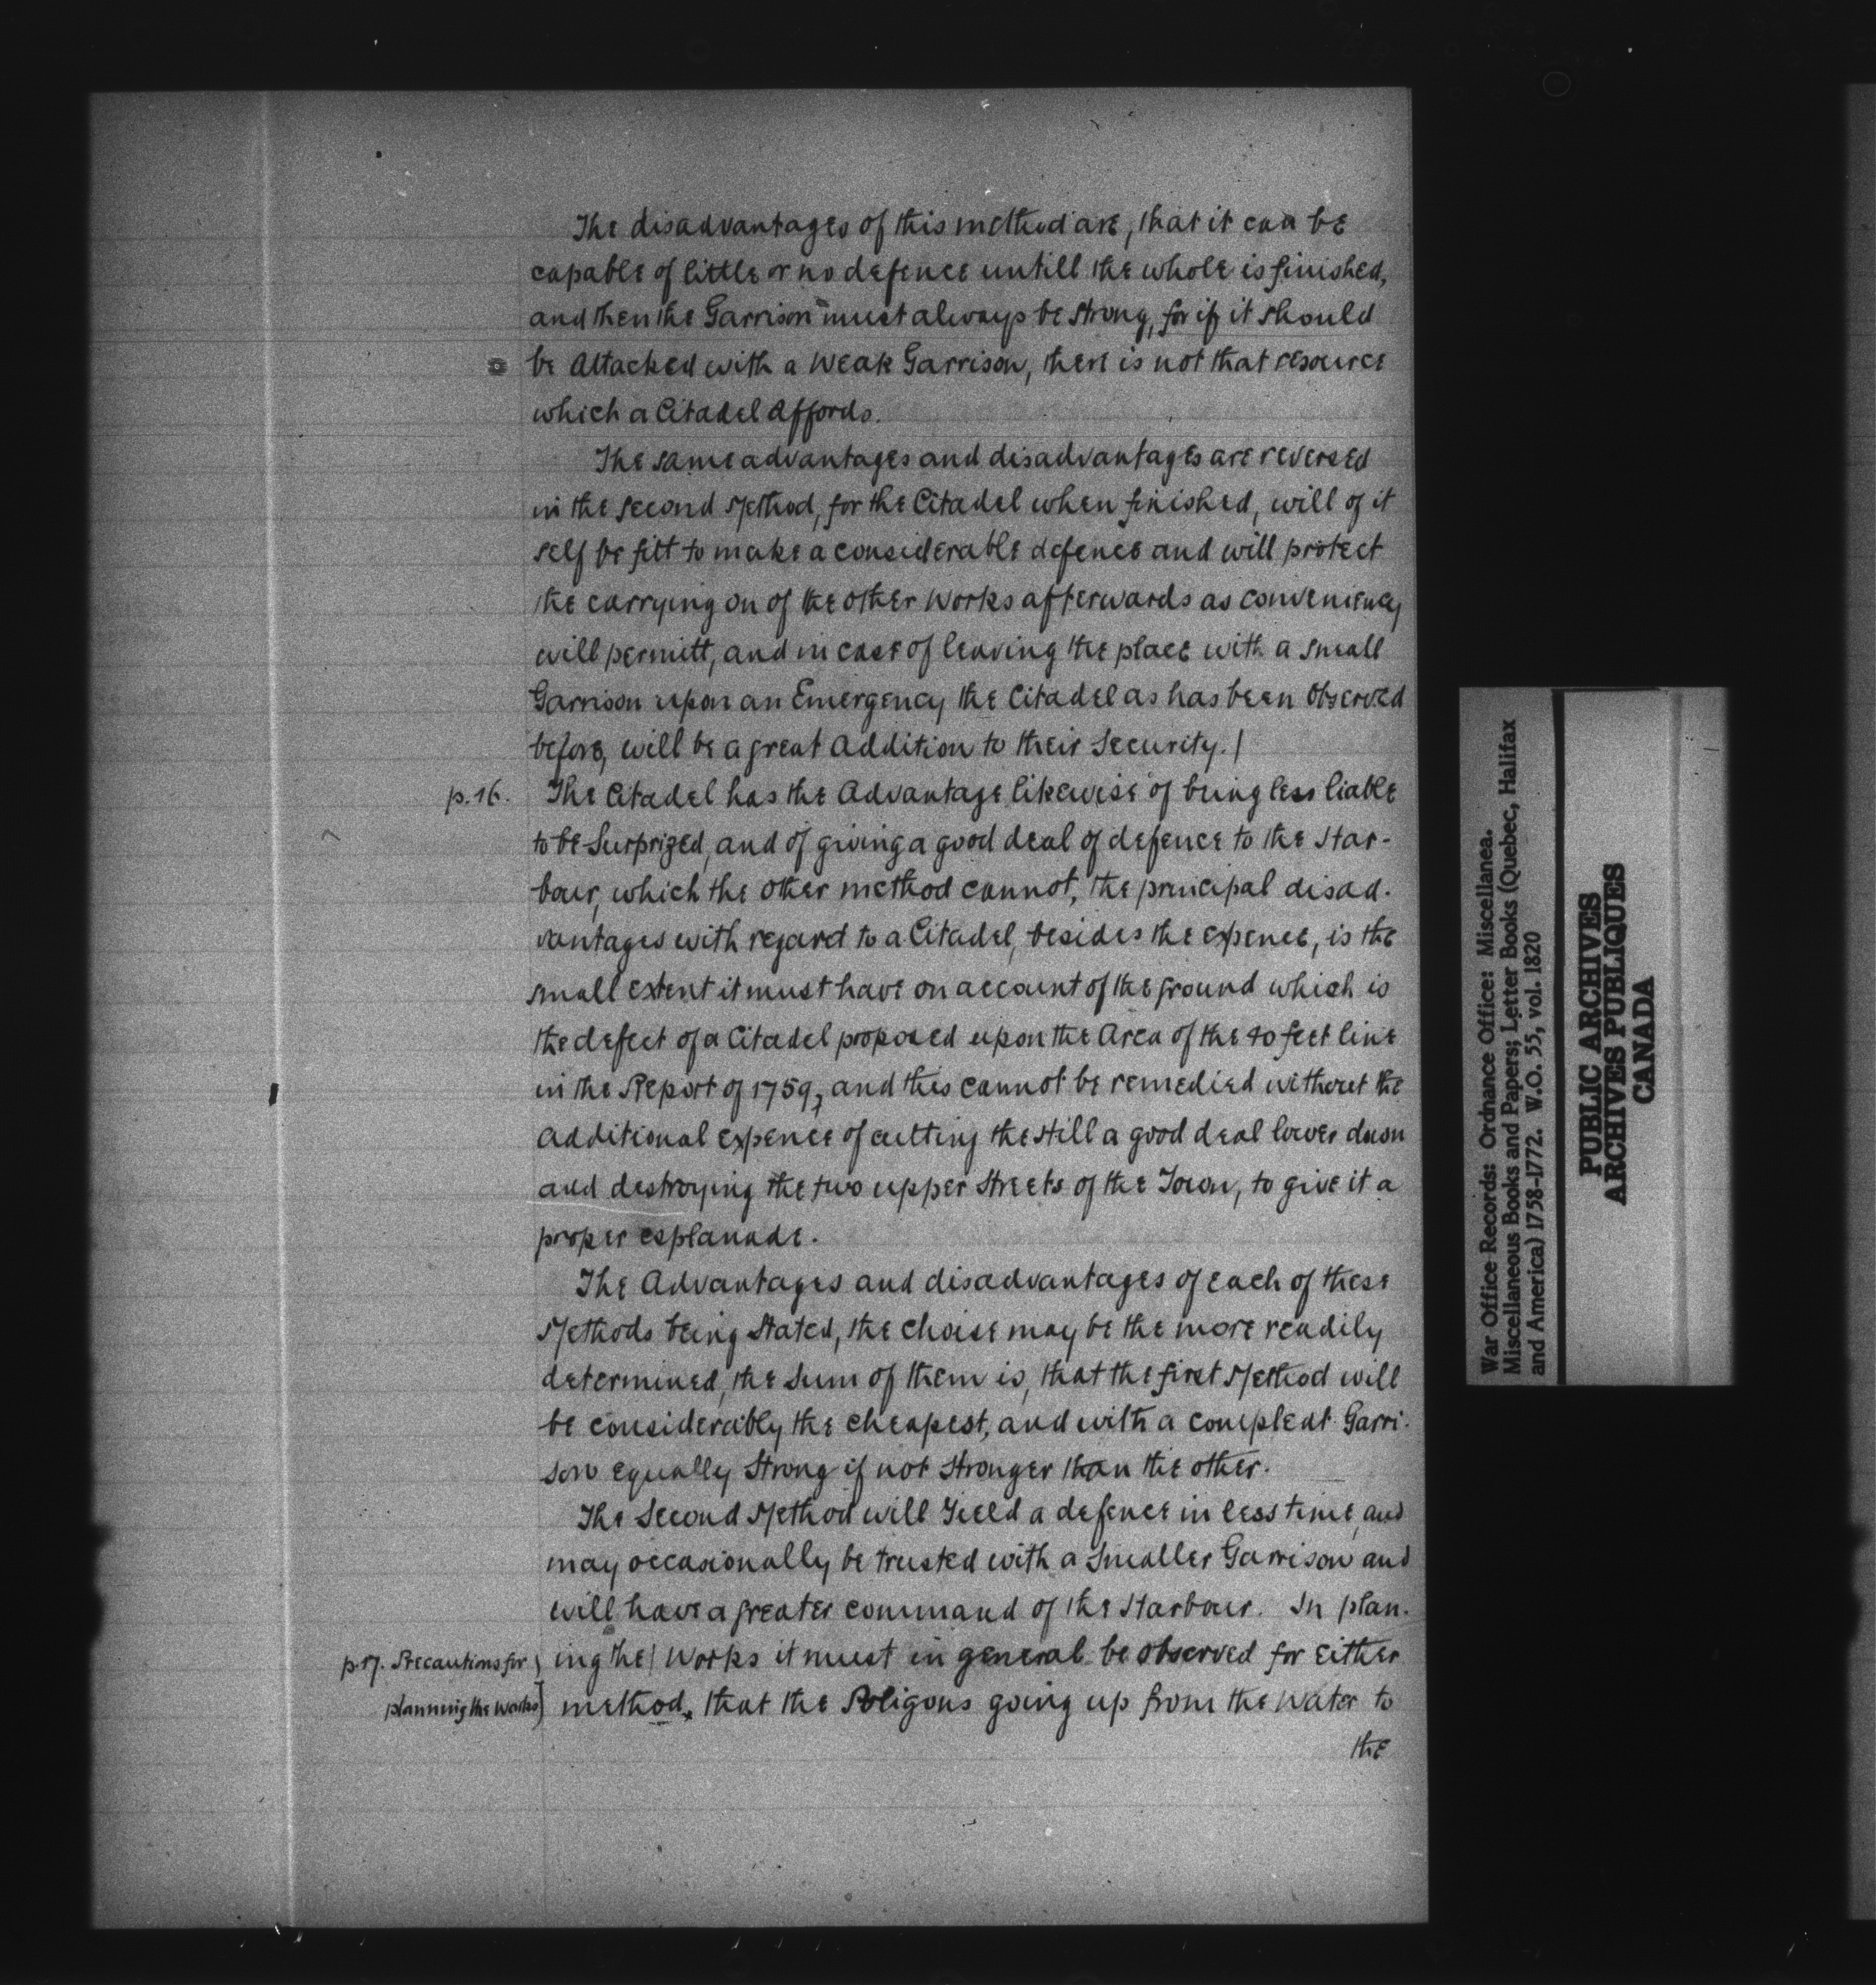 The disadvantages of this method are, that it can be
capable of little or no defence untill the whole is finished,
and then the Garrison must always be strong, for if it should
be Attacked with a Weak Garrison, there is not that resource
which a Citadel Affords.
The same advantages and disadvantages are reversed
in the second Method, for the Citadel when finished, will of it
self be fitt to make a considerable defence and will protect
the carrying on of the other Works afterwards as conveniency
will permitt, and in case of leaving the place with a small
Garrison upon an Emergency the Citadel as has been Observed
before, will be a great Addition to their Security. /
p. 16. The Citadel has the Advantage likewise of being less liable
to be Surprized, and of giving a good deal of defence to the Har-
bour, which the other method cannot, the principal disad-
vantages with regard to a Citadel, besides the expence, is the
small extent it must have on account of the ground which is
the defect of a Citadel proposed upon the Area of the 40 feet line
in the Report of 1759, and this cannot be remedied without the
Additional expence of cutting the Hill a good deal lower down
and destroying the two upper Streets of the Town, to give it a
proper esplanade.
The Advantages and disadvantages of each of these
Methods being Stated, the Choise may be the more readily
determined, the Sum of them is, that the first Method will
be considerably the cheapest, and with a compleat Garri-
son equally Strong if not Stronger than the other.
The Second Method will Yield a defence in less time, and
may occasionally be trusted with a Smaller Garrison and
will have a greater command of the Harbour. In plan-
p. 17. Precautions for } ing the / Works it must in general be Observed for Either
planning the Works } method, that the Poligons going up from the Water to
the
War Office Records: Ordnance Office: Miscellanea.
Miscellaneous Books and Papers; Letter Books (Quebec, Halifax
and America) 1758-1772. W.O. 55, vol. 1820
PUBLIC ARCHIVES
ARCHIVES PUBLIQUES
CANADA